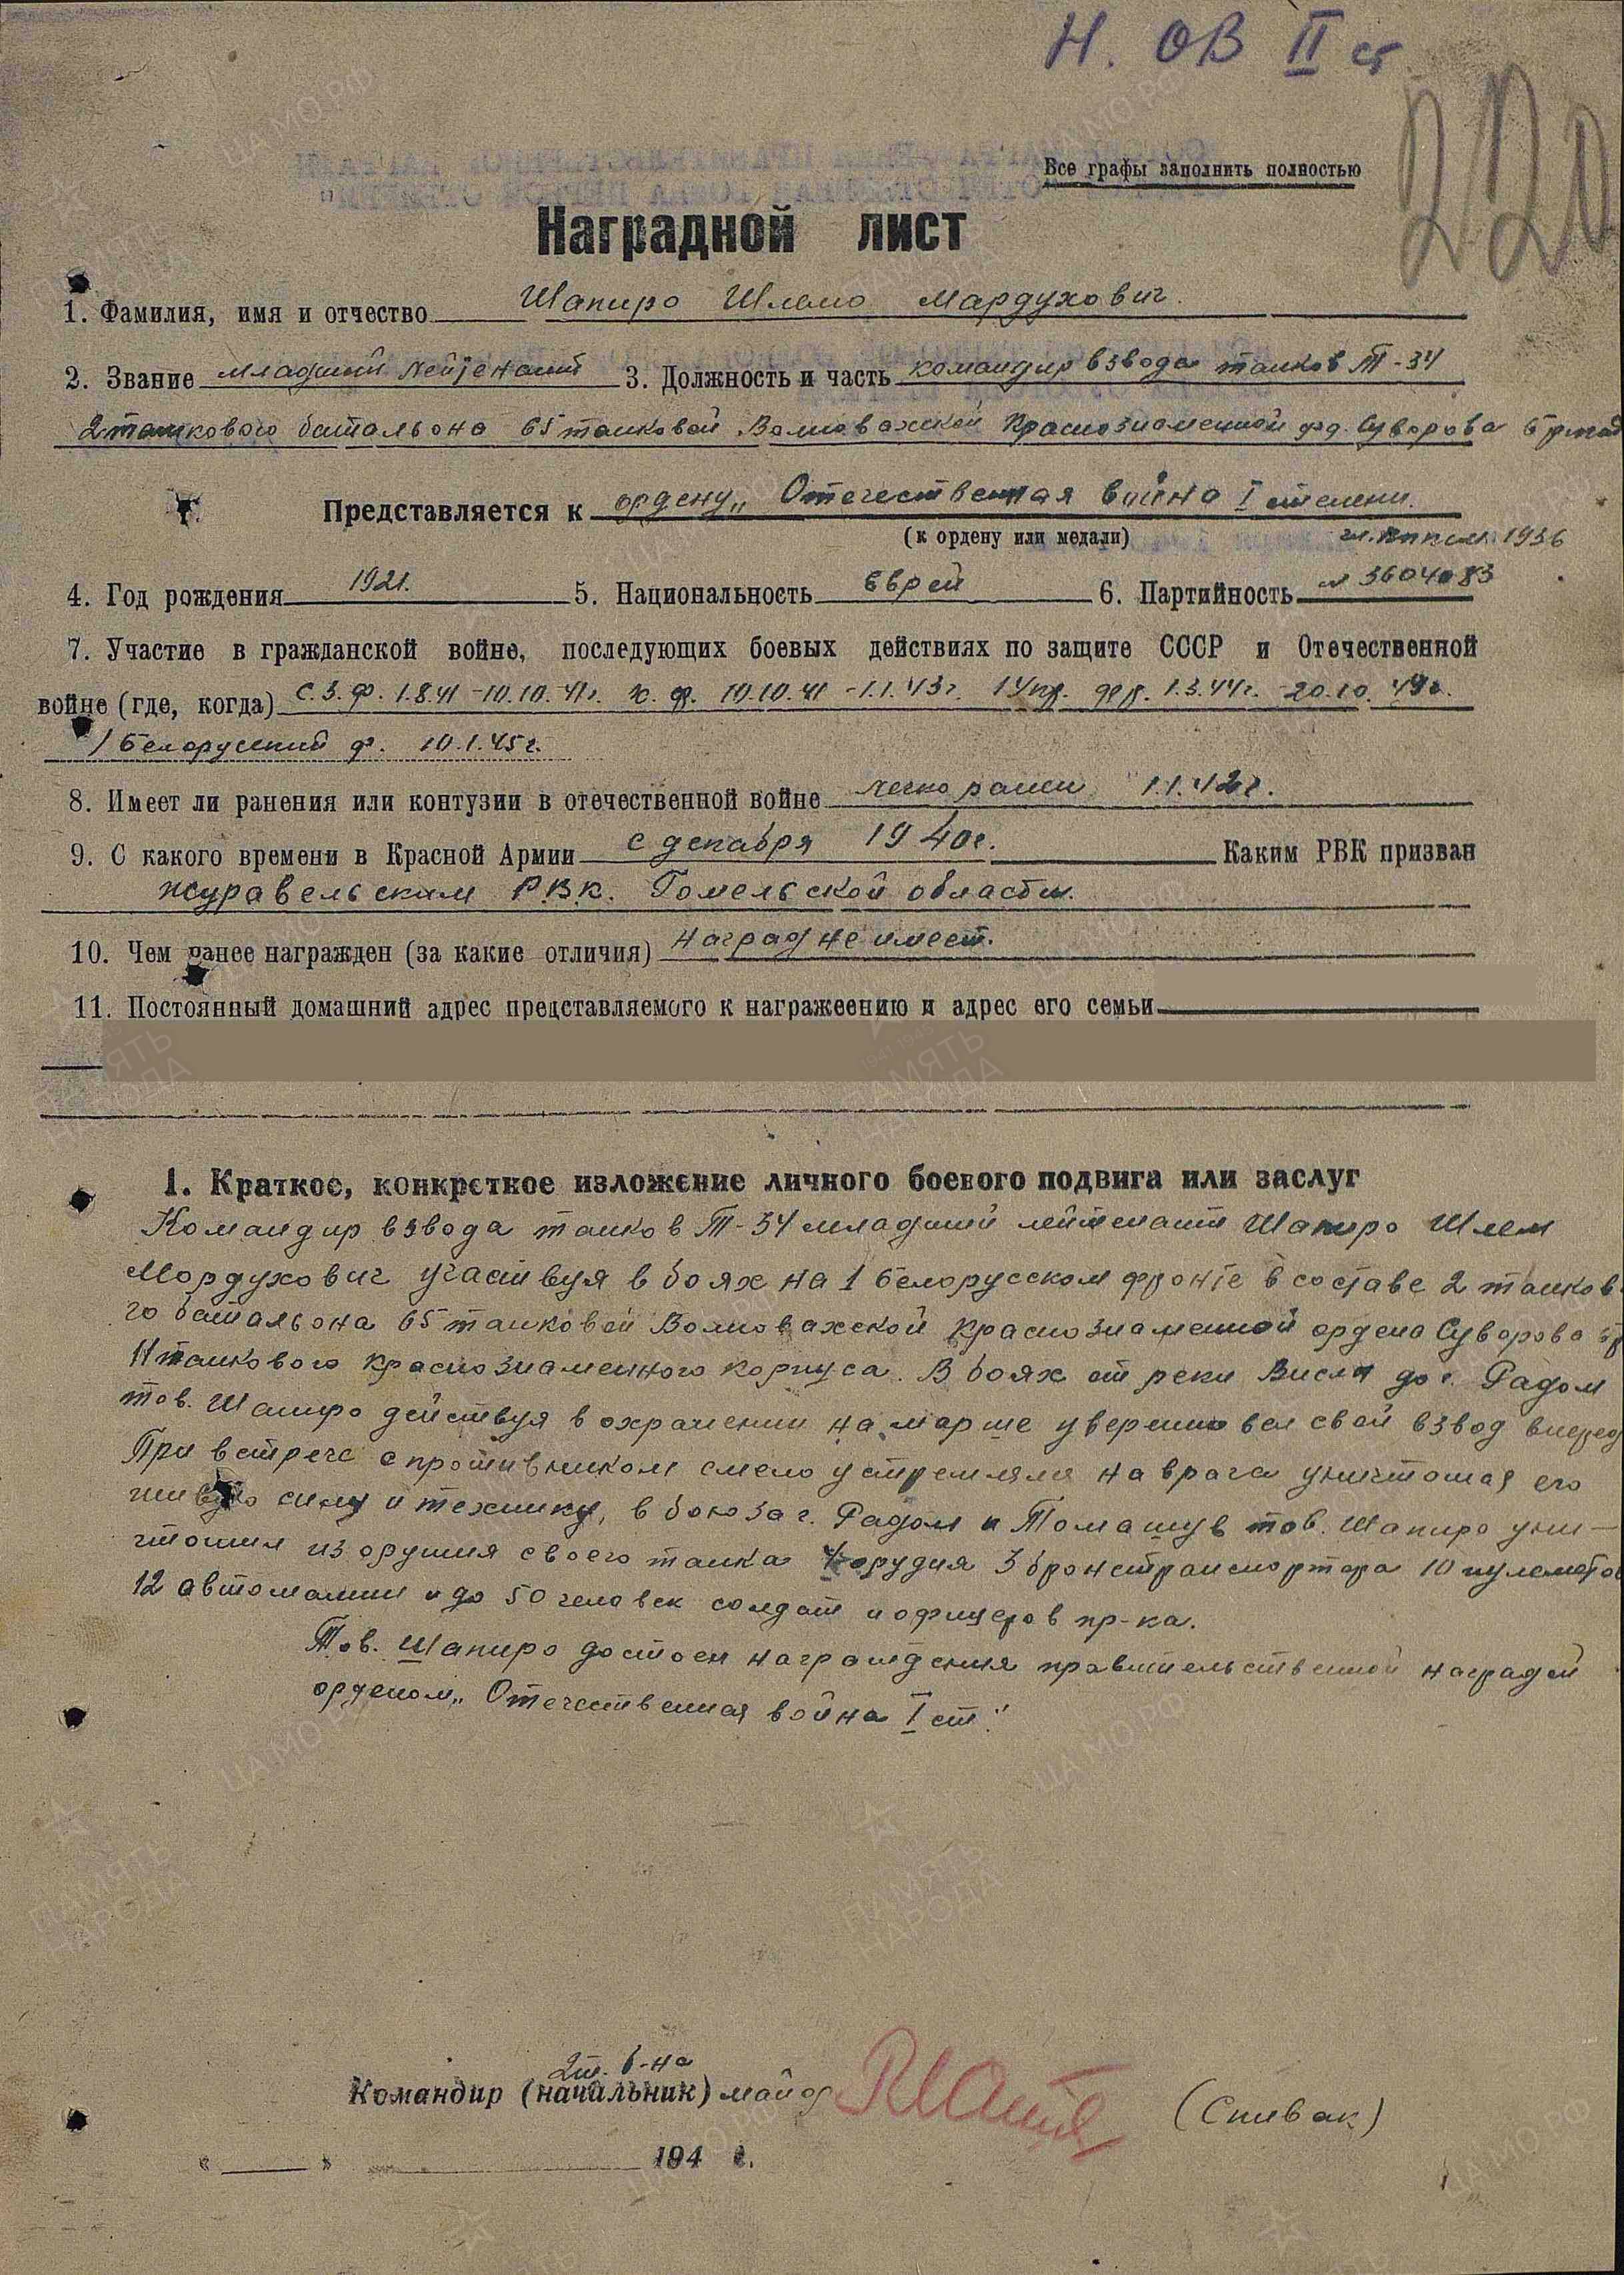 Н. ОВ II ст
220
Все графы заполнить полностью
Наградной лист
1. Фамилия, имя и отчество Шапиро Шлемо Мардухович.
2. Звание младший лейтенант 3. Должность и часть командир взвода танков Т-34
2 танкового батальона 65 танковой Волновахской Краснознаменной орд. Суворова бригад
Представляется к ордену „Отечественная война I степени.
(к ордену или медали)
1936
4. Год рождения 1921. 5. Национальность Еврей 6. Партийность № 3604083
7. Участие в гражданской войне, последующих боевых действиях по защите СССР и Отечественной
войне (где, когда) С.З.Ф. 1.8.41 -10.10.41г. Ю.Ф. 10.10.41 -1.1.43г. 1 Укр. фр. 1.3.44г. -20.10.44г.
1 Белорусский ф. 10.1.45г.
8. Имеет ли ранения или контузии в отечественной войне легко ранен 1.1.42г.
9. С какого времени в Красной Армии с декабря 1940г. Каким РВК призван
Журавельским Р.В.К. Гомельской области.
10. Чем ранее награжден (за какие отличия) наград не имеет.
11. Постоянный домашний адрес представляемого к награжеению и адрес его семьи
1. Краткое, конкретное изложение личного боевого подвига или заслуг
Командир взвода танков Т-34 младший лейтенант Шапиро Шлем
Мордухович участвуя в боях на 1 Белорусском фронте в составе 2 танков
го батальона 65 танковой Волновахской Краснознаменной ордена Суворова бр
11 танкового краснознаменного корпуса. В боях от реки Висла до г. Радом
тов. Шапиро действуя в охранении на марше уверенно вел свой взвод вперед
При встрече с противником смело устремлялся на врага уничтожая его
живую силу и технику, в бою за г. Радом и Томашув тов. Шапиро уни-
чтожил из орудия своего танка 4 орудия 3 бронетранспортера 10 пулеметов
12 автомашин и до 50 человек солдат и офицеров пр-ка.
Тов. Шапиро достоен награждения правительственной наградой
орденом „Отечественная война I ст."
2т. б-на
Командир (начальник) майор (Спивак)
« » 194 г.